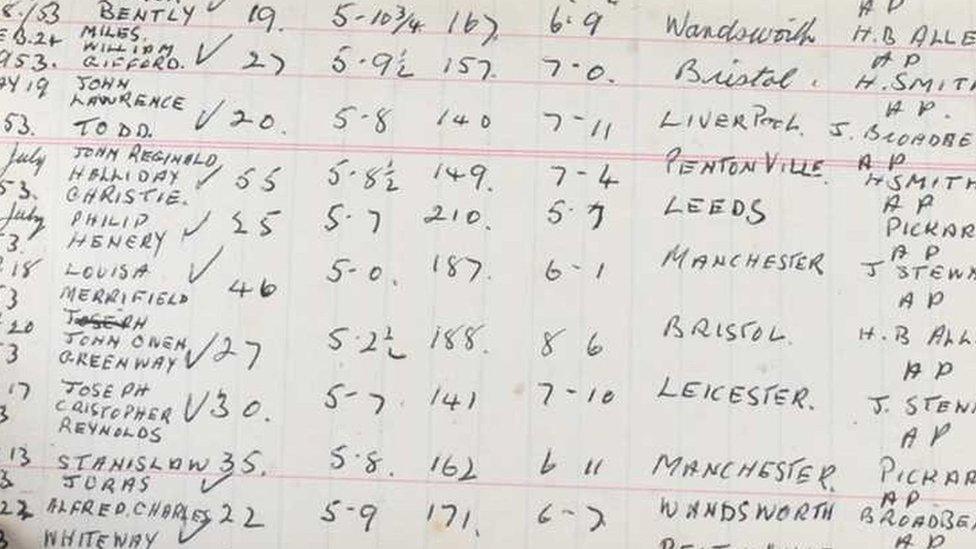 8./53 BENTLY ✓ 19. 5-10¾ 167 6-9 Wandsworth A P
MILES. H.B ALLE
WILLIAM A P
953. GIFFORD. ✓ 27 5-9½ 157. 7-0. Bristol. H. SMITH
AY 19 JOHN
LAWRENCE A P.
53. TODD. ✓ 20. 5-8 140 7-11 LIVERPOOL. J. BROADBE
July JOHN REGINALD PENTONVILLE. A P
HALLIDAY ✓ 55 5-8½ 149. 7-4 H SMITH
53. CHRISTIE. A P
July PHILIP ✓ 25 5-7 210. 5-7 LEEDS PICKAR
3. HENERY A P
18 LOUISA ✓ 46 5-0. 187. 6-1 MANCHESTER J STEW
3 MERRIFIELD A P
20 JOSEPH BRISTOL. H. B ALL
JOHN OWEN
3 GREENWAY ✓ 27 5-2½ 188. 8 6 A P
17 JOSEPH LEICESTER. J. STEW
3 CRISTOPHER ✓ 30. 5-7. 141 7-10
REYNOLDS A P
13 STANISLAW 35. 5-8. 162 6 11 MANCHESTER. PICKAR
3 JURAS ✓ A P
22 ALFRED. CHARLES 22 5-9 171. 6-7 WANDSWORTH BROADBE
3 WHITEWAY ✓ A P